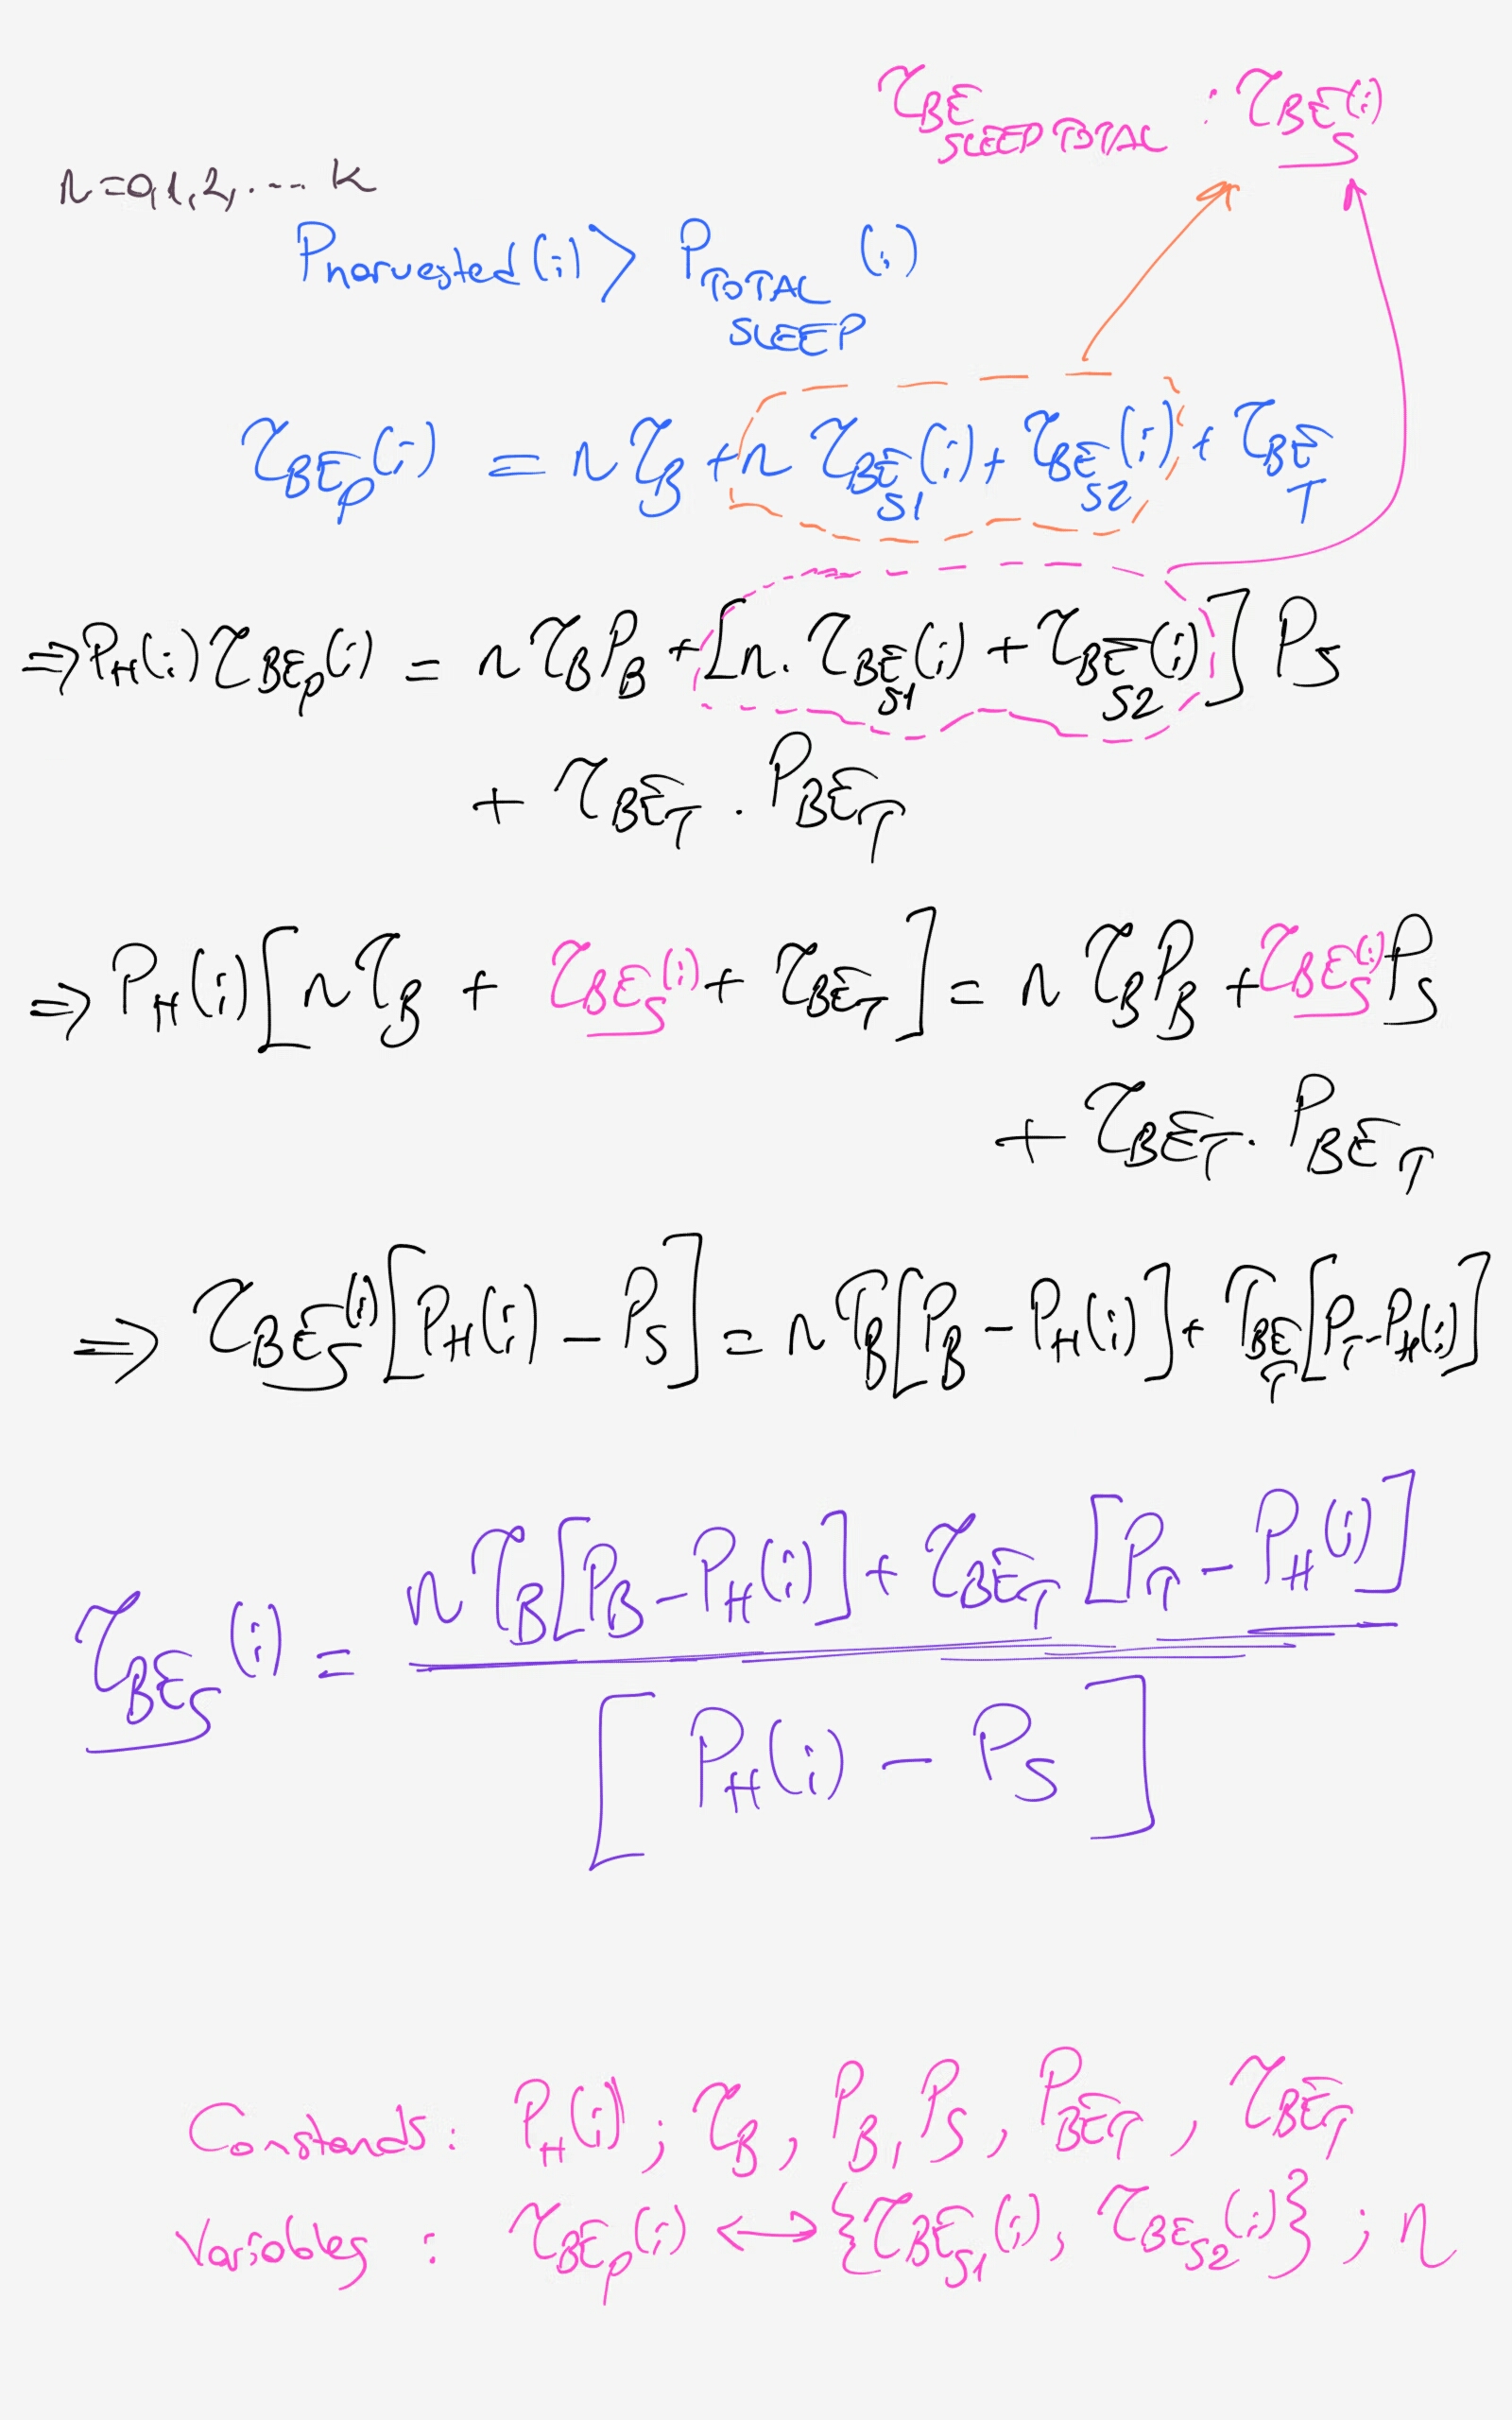 τ_BE_SLEEP TOTAL : τ_BE_S(i)
n=0,1,2,.... k
P_harvested(i) > P_TOTAL SLEEP (i)
τ_BE_P(i) = n τ_B + n τ_BE_S1(i) + τ_BE_S2(i) + τ_BE_T
⇒ P_H(i) τ_BE_P(i) = n τ_B P_B + [n. τ_BE_S1(i) + τ_BE_S2(i)] P_S
+ τ_BE_T . P_BE_T
⇒ P_H(i) [n τ_B + τ_BE_S(i) + τ_BE_T] = n τ_B P_B + τ_BE_S(i) P_S
+ τ_BE_T . P_BE_T
⇒ τ_BE_S(i) [P_H(i) - P_S] = n τ_B [P_B - P_H(i)] + τ_BE_T [P_T - P_H(i)]
τ_BE_S(i) = n τ_B [P_B - P_H(i)] + τ_BE_T [P_T - P_H(i)]
[P_H(i) - P_S]
Constants: P_H(i) ; τ_B , P_B , P_S , P_BE_T , τ_BE_T
Variables : τ_BE_P(i) ↔ {τ_BE_S1(i), τ_BE_S2(i)} ; n